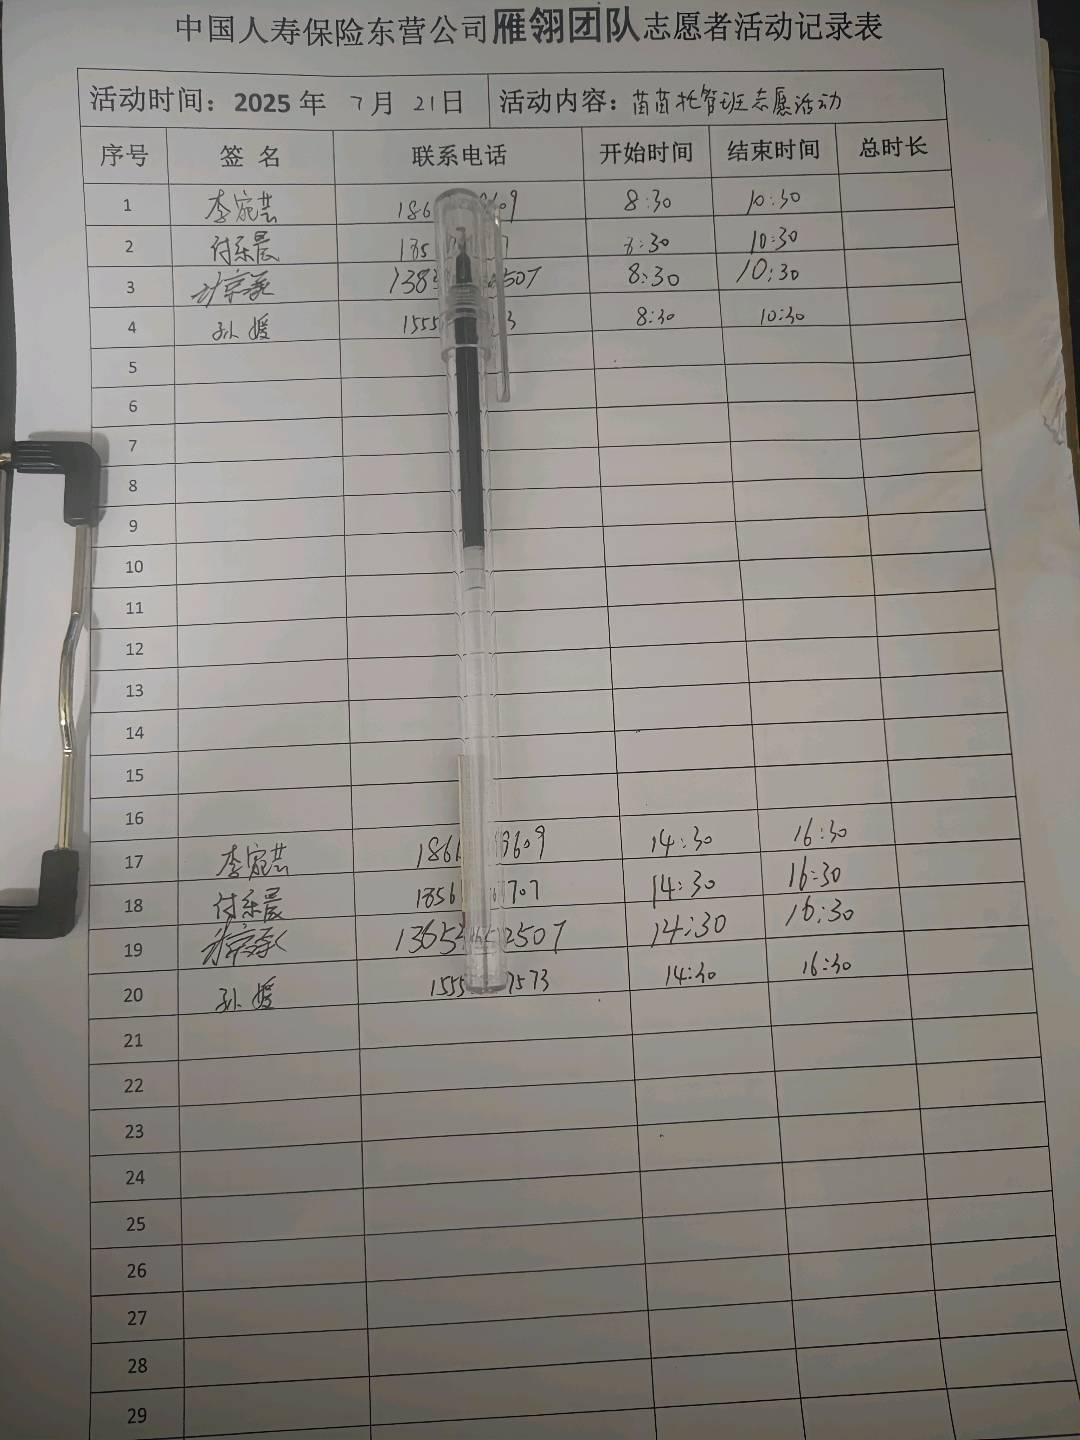 中国人寿保险东营公司雁翎团队志愿者活动记录表
活动时间：2025年 7月 21日 活动内容：苗苗托管班志愿活动
序号 签名 联系电话 开始时间 结束时间 总时长
1 李宛芸 186 609 8:30 10:30
2 付乐晨 185 7 8:30 10:30
3 138 507 8:30 10:30
4 孙媛 1555 3 8:30 10:30
5
6
7
8
9
10
11
12
13
14
15
16
17 李宛芸 186 3609 14:30 16:30
18 付乐晨 1856 707 14:30 16:30
19 2507 14:30 16:30
20 孙媛 1555 7573 14:30 16:30
21
22
23
24
25
26
27
28
29